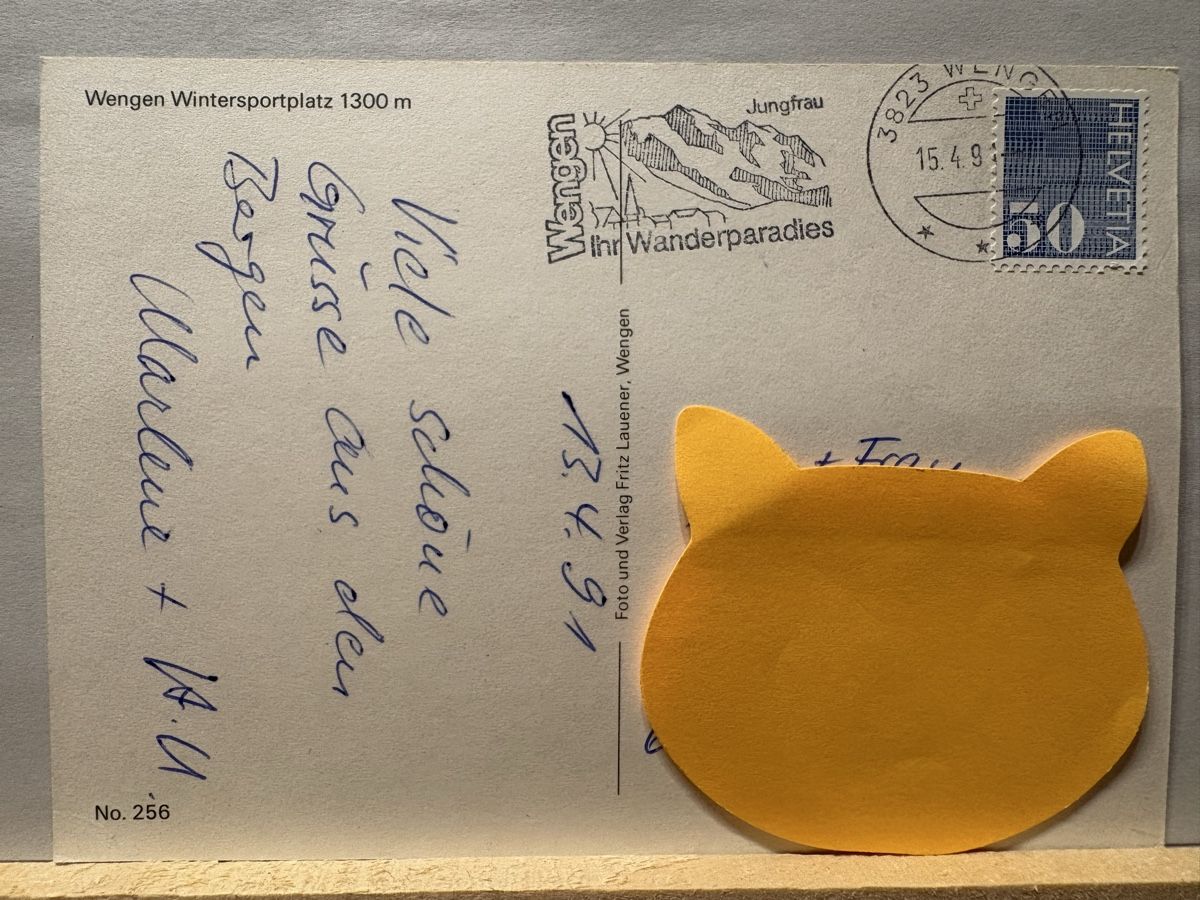 Wengen Wintersportplatz 1300 m
Wengen
Jungfrau
Ihr Wanderparadies
3823 WENG
15.4.9
HELVETIA
50
13.4.91
Viele schöne
Grüsse aus den
Bergen
Marlene + H.U.
Foto und Verlag Fritz Lauener, Wengen
+ Frau
No. 256